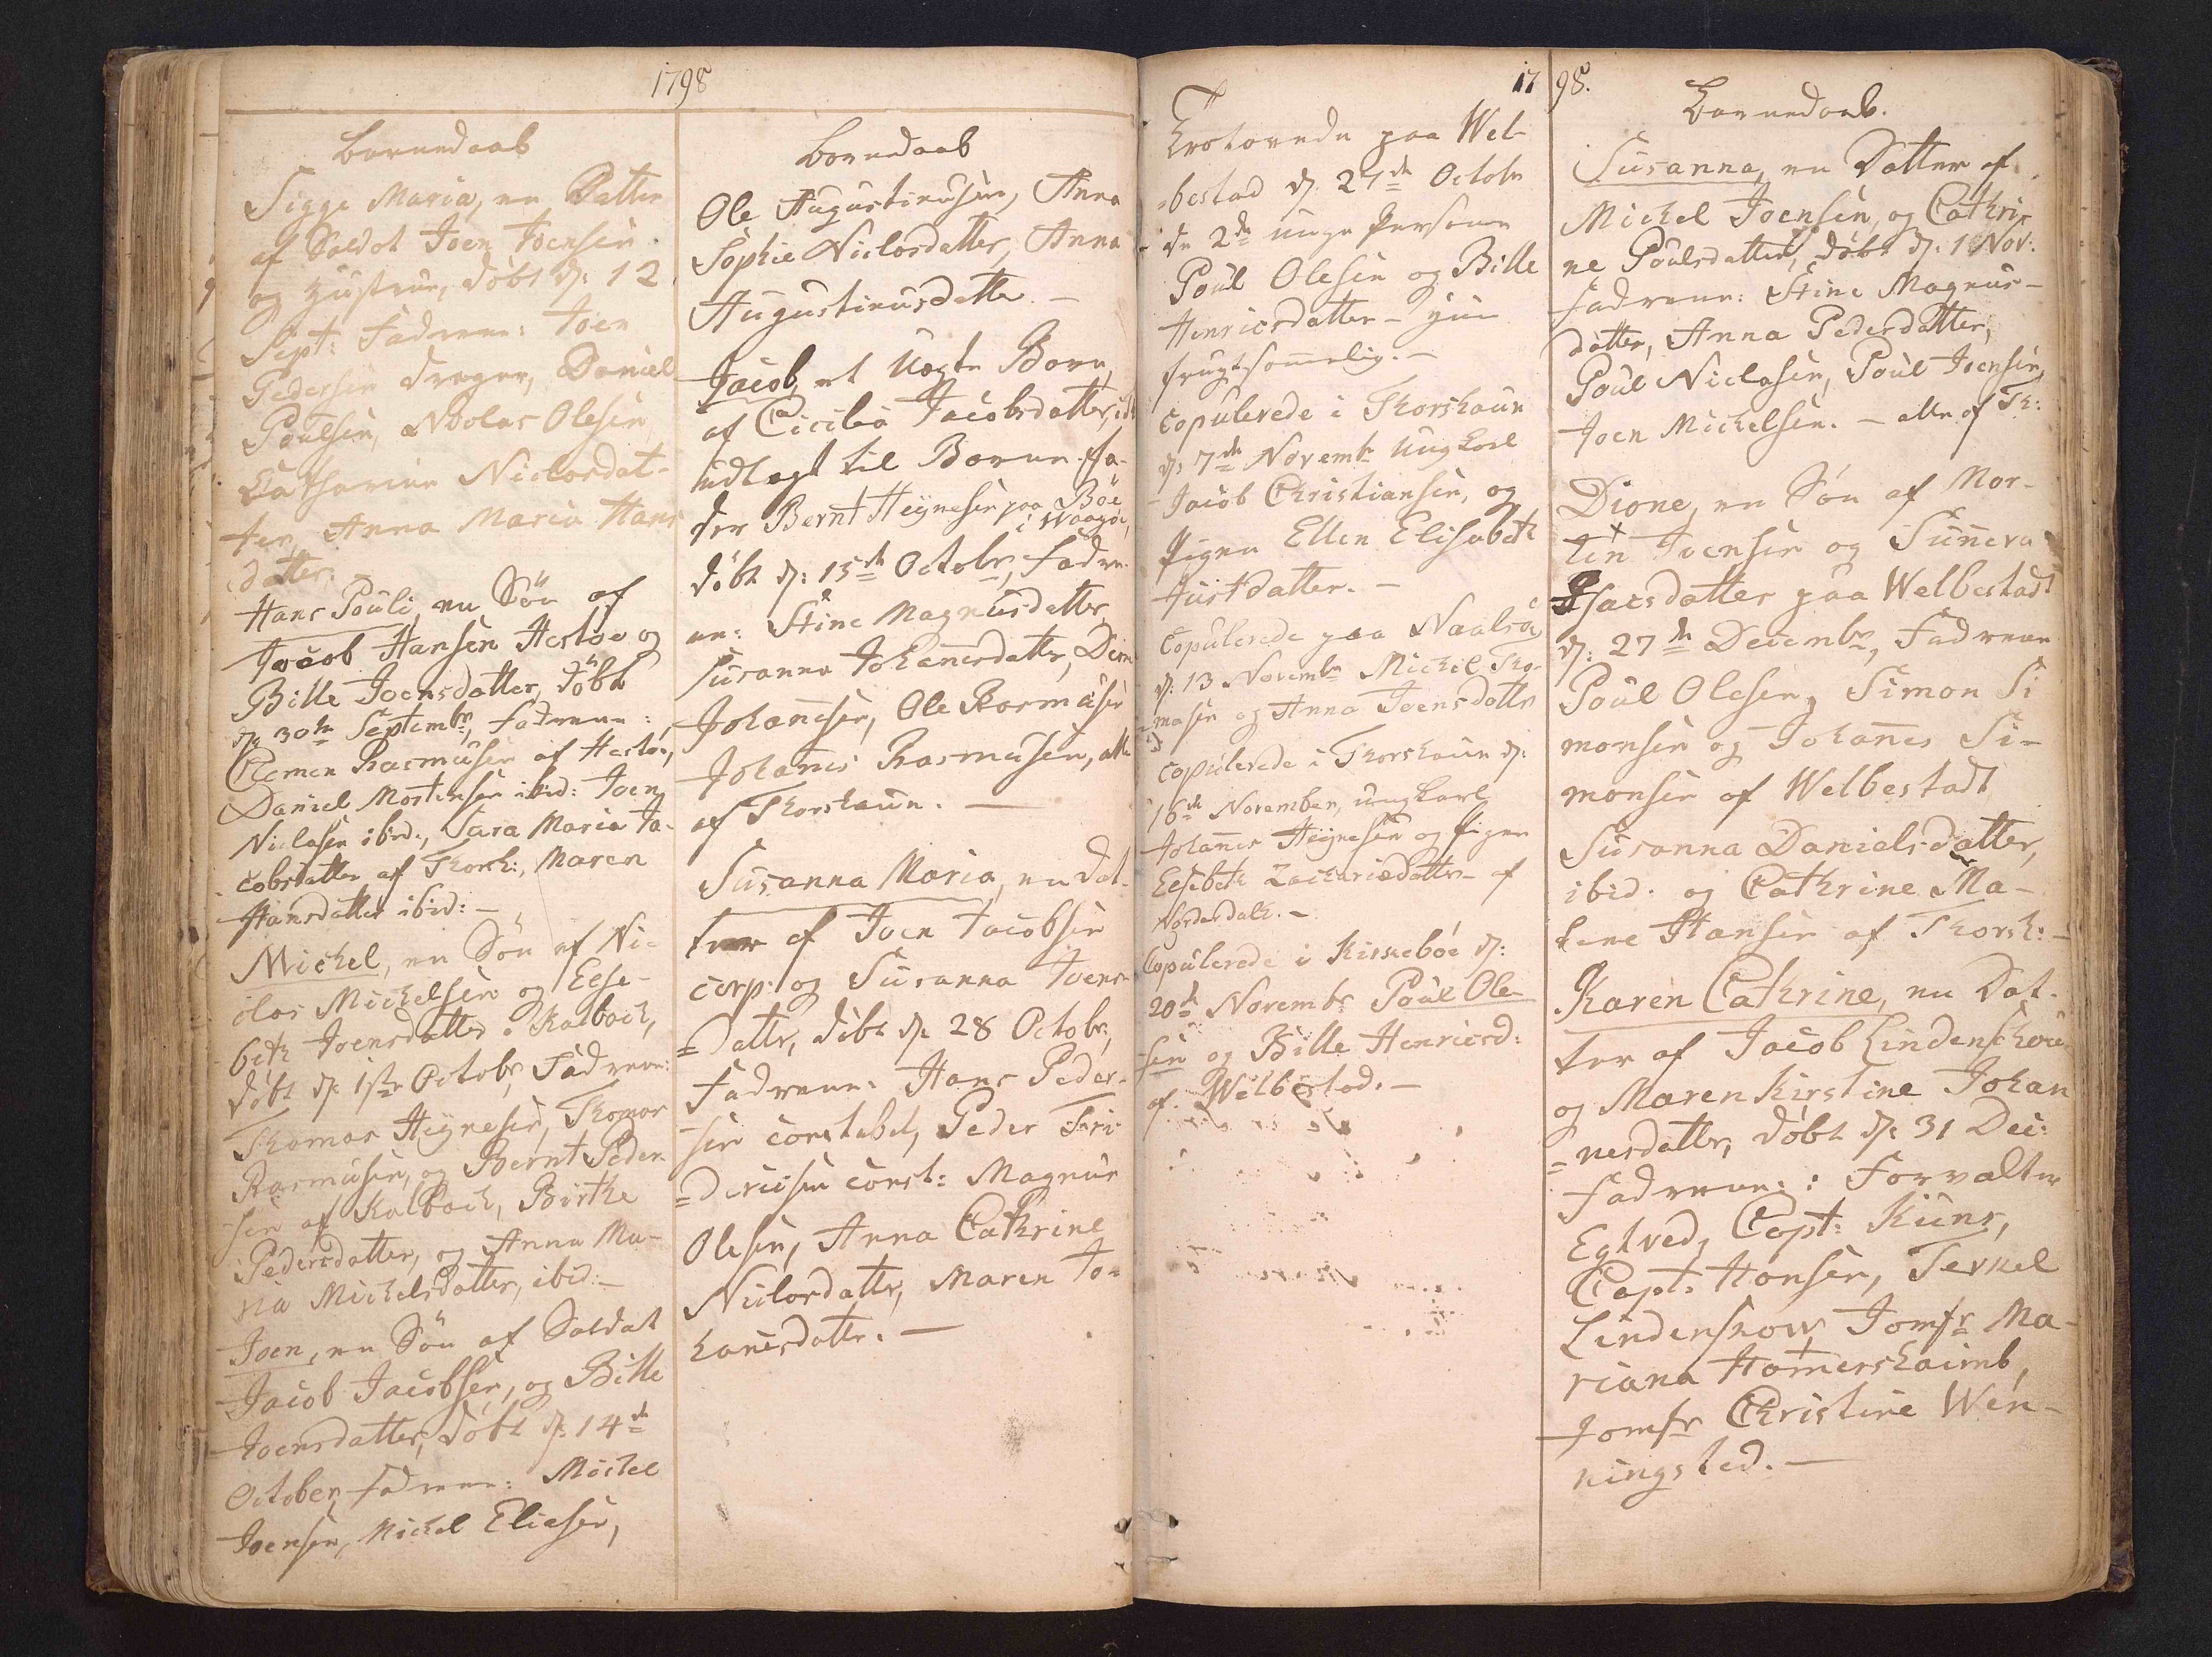 1798
Barnedaab
Sigge Maria, en Datter
af Soldat Joen Joensen
og Hustrue, døbt d: 12
Sept: Fadrene: Joen
Pedersen Drager, Daniel
Poulsen, Nicolas Olesen,
Catharine Niclasdat-
ter, Anna Maria Hans
datter.
Hans Pouli, en Søn af
Jacob Hansen Hestøe og
Bille Joensdatter, døbt
d: 30te Septembr, Fadrene:
Clemen Rasmusen af Hestøe,
Daniel Mortensen ibid: Joen
Niclasen ibid:, Sara Maria Ja-
cobsdatter af Thorsh:, Maren
Hansdatter ibid: —
Michel, en Søn af Ni-
clas Michelsen og Else-
beth Joensdatter i Kalbach,
døbt d: 1ste Octobr, Fadrene:
Thomas Heynesen, Thomas
Rasmusen, og Bernt Peder-
sen af Kalbach, Birthe
Pedersdatter, og Anna Ma-
ria Michelsdatter, ibid: —
Joen, en Søn af Soldat
Jacob Jacobsen, og Bille
Joensdatter, døbt d: 14de
October, Fadrene: Michel
Joensen, Michel Eliasen,
Barnedaab
Ole Augustinusen, Anna
Sophie Niclasdatter, Anna
Augustinusdatter. —
Jacob, et Uægte Barn,
af Cicilia Jacobsdatter,
udlagt til Barne-Fa-
der Bernt Heynesen paa Bøe
i Waagøe,
døbt d: 15de Octobr, Fadre-
ne: Stine Magnusdatter,
Susanna Johanesdatter,
Johannesen, Ole Rasmusen
Johannes Rasmusen, alle
af Thorshaun. —
Susanna Maria, en Dat-
ter af Joen Jacobsen
corp: og Susanna Joens-
=datter, døbt d: 28 Octobr,
Fadrene: Hans Peder-
sen constabel, Peder Fri-
=dericsen const: Magnus
Olesen, Anna Cathrine
Niclasdatter, Maren Jo-
hanesdatter. —
1798.
Trolovede paa Wel-
=bestad d: 27de Octobr
de 2de unge Personer
Poul Olesen og Bille
Henricsdatter - hun
frugtsommelig. —
Copulerede i Thorshaun
d: 7de Novembr Ungkarl
Jacob Christiansen, og
Pigen Ellen Elisabeth
Justdatter. —
Copulerede paa Naalsøe
d: 13 Novembr Michel Tho-
masen og Anna Joensdatter
Copulerede i Thorshaun d:
16de November, Ungkarl
Johannes Heynesen og Pigen
Elsebeth Zachariædatter af
Norderdalh. —
Copulerede i Kirkebøe d:
20de Novembr Poul Ole-
sen og Bille Henricsd:
af Welbestad. —
Barnedaab.
Susanna, en Datter af
Michel Joensen, og Cathri-
ne Poulsdatter, døbt d: 1 Nov:
Fadrene: Stine Magnus-
datter, Anna Pedersdatter,
Poul Niclasen, Poul Joensen,
Joen Michelsen. — alle af Th:
Dione, en Søn af Mor-
ten Joensen og Sunneva
Isacsdatter paa Welbestadt
d: 27de Decembr, Fadrene
Poul Olesen, Simon Si
monsen og Johannes Si-
monsen af Welbestadt
Susanna Danielsdatter,
ibid: og Cathrine Ma-
lene Hansen af Thorsh: —
Karen Cathrine, en Dat-
ter af Jacob Lindenschou
og Maren Kirstine Johan
=nesdatter, døbt d: 31 Dec:
Fadrene: : Forvalter
Egtved, Capt: Küns,
Capt: Hansen, Terkel
Lindensnow, Jomfr Ma-
riana Hamershaimb,
Jomfr Christine Wen-
ningsted. —